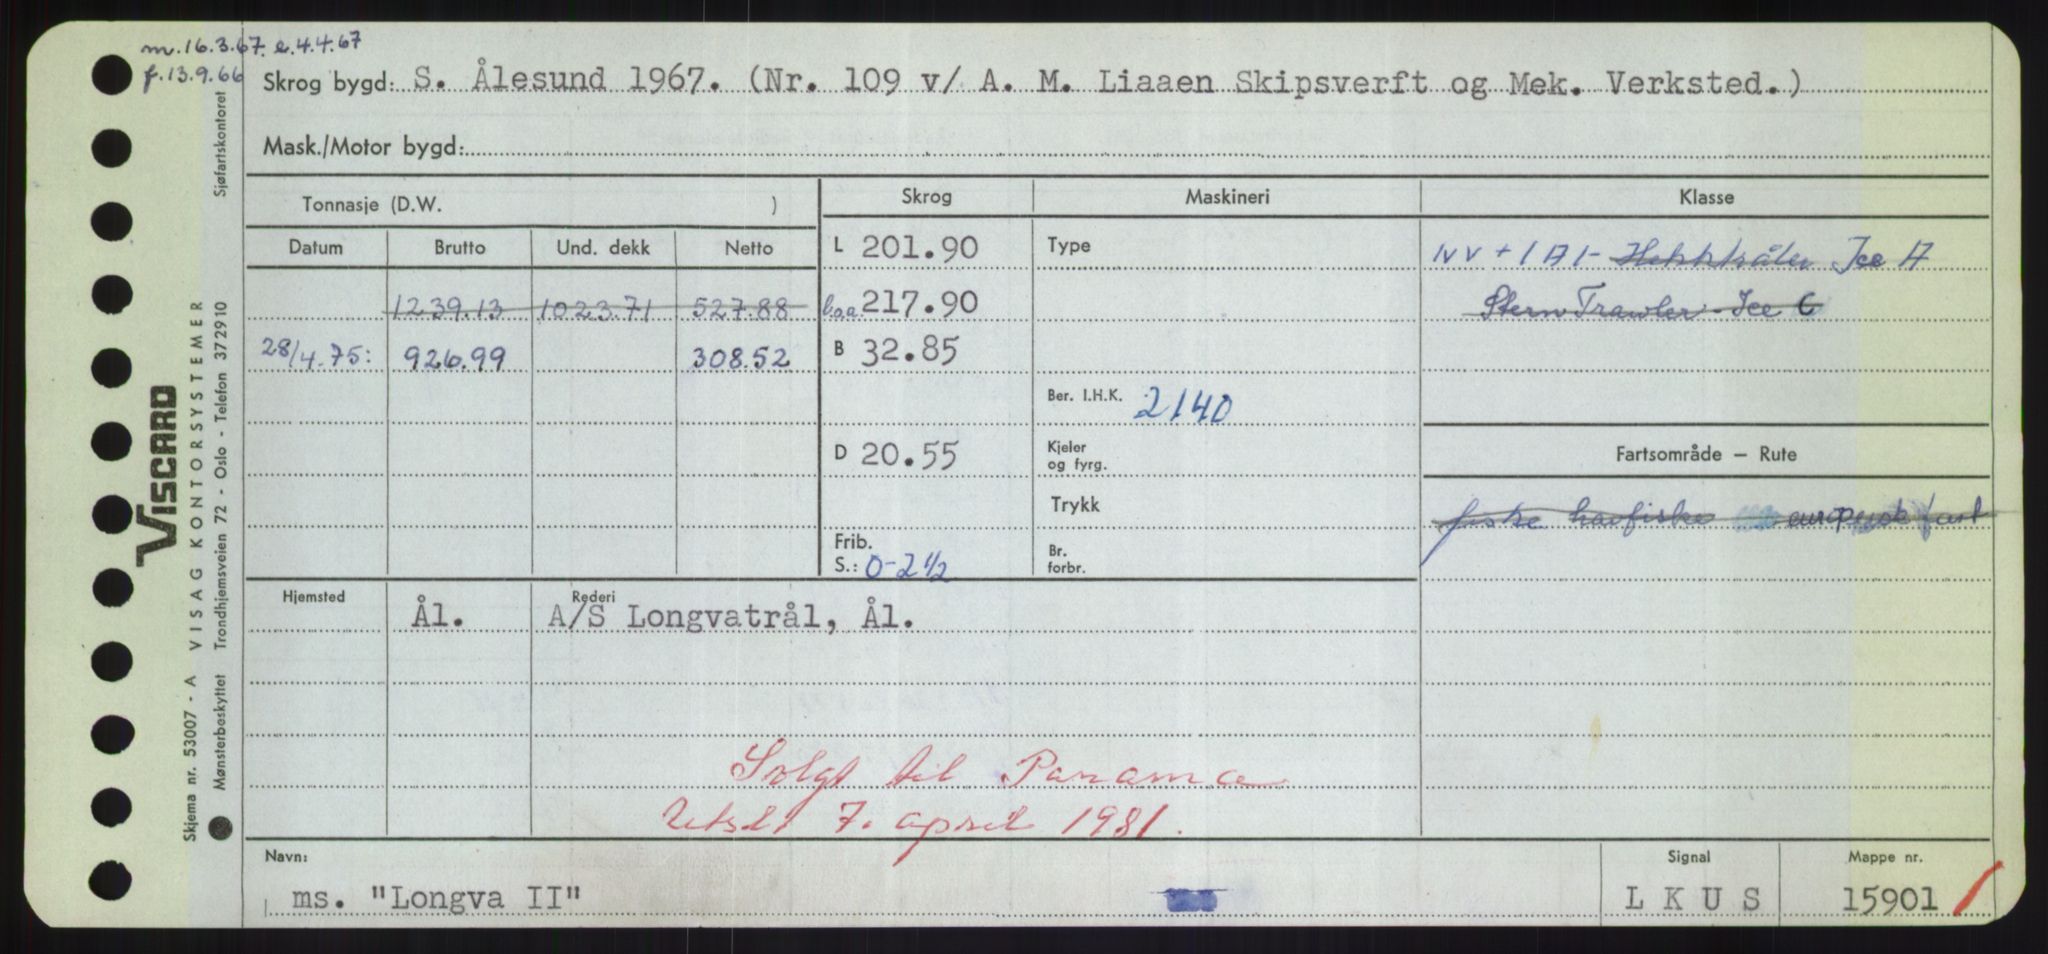 m.16.3.67. e.4.4.67
f.13.9.66
Skrog bygd: S. Ålesund 1967. (Nr. 109 v/ A. M. Liaaen Skipsverft og Mek. Verksted.)
Mask./Motor bygd:
Tonnasje (D.W. )
Skrog Maskineri Klasse
Datum Brutto Und. dekk Netto
L 201.90 Type
1239.13 1023.71 527.88
l.o.a. 217.90
Stern Trawler - Ice C
28/4.75: 926.99 308.52
B 32.85
Ber. I.H.K. 2140
D 20.55 Kjeler og fyrg.
Fartsområde – Rute
Trykk
fiske havfiske europeisk fart
Frib.
S.: 0-2 1/2
Br. forbr.
Hjemsted Rederi
Ål. A/S Longvatrål, Ål.
Solgt til Panama
7. april 1981.
Navn: Signal Mappe nr.
ms. "Longva II" L K U S 15901
VISCARD
Skjema nr. 53007 - A VISAG KONTORSYSTEMER
Mønsterbeskyttet Trondhjemsveien 72 - Oslo - Telefon 372910 Sjøfartskontoret